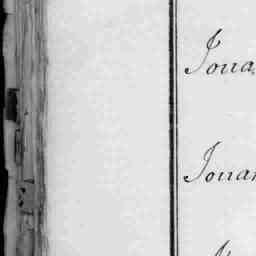 Joua
Jouan